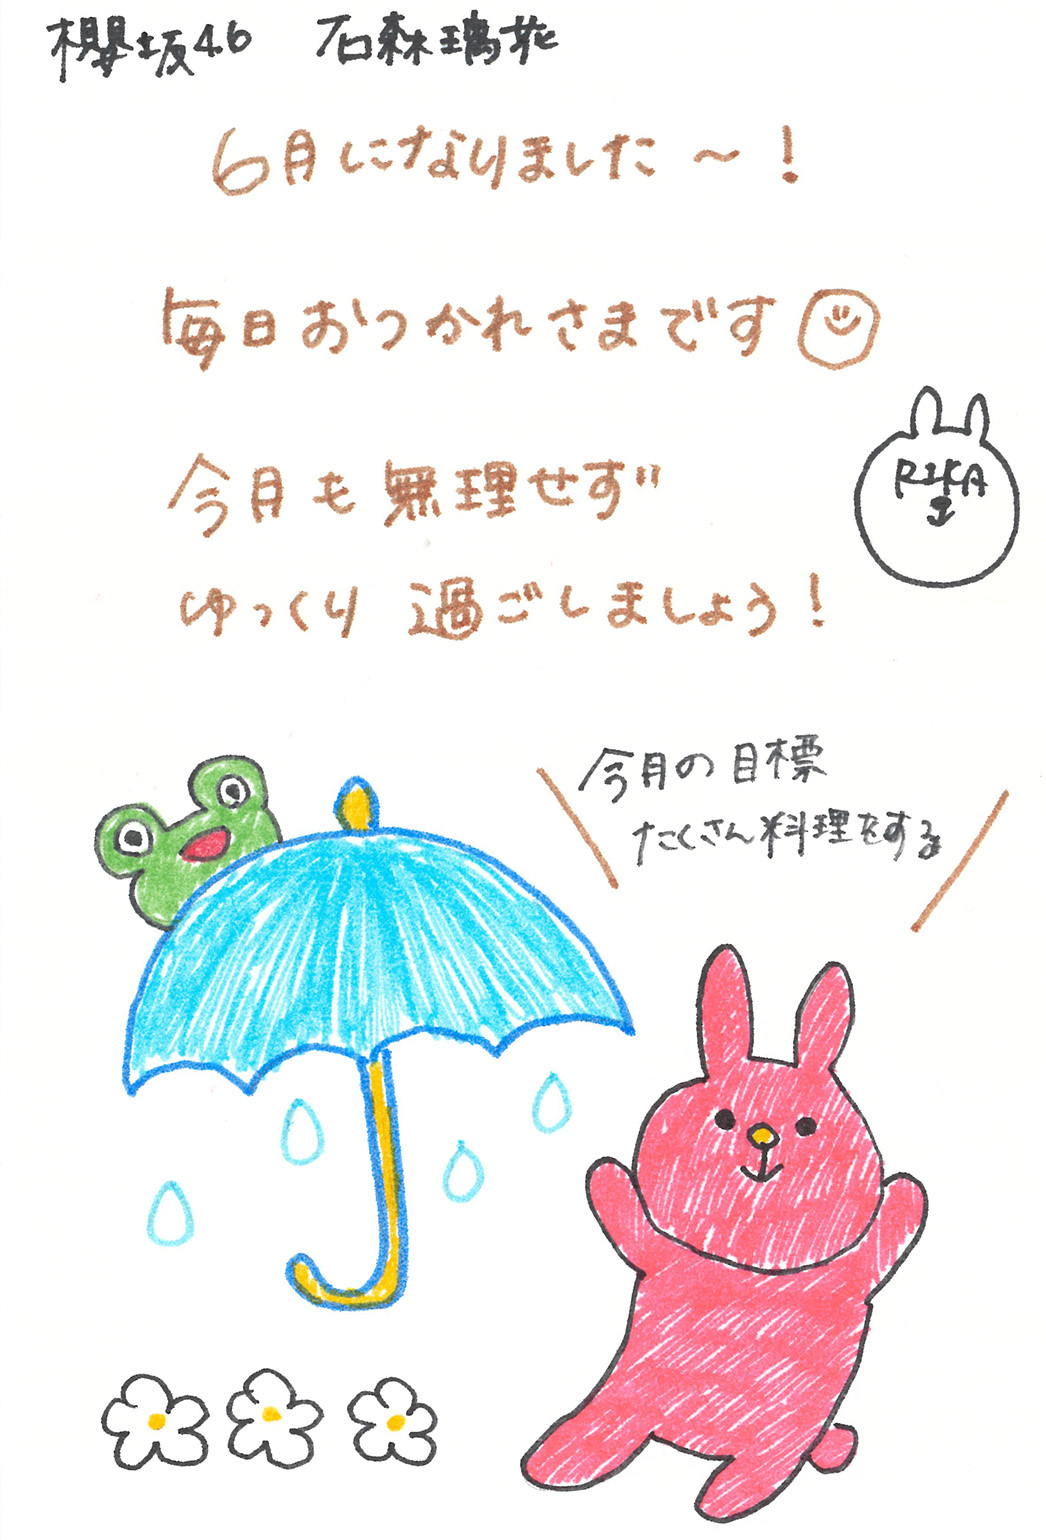 櫻坂46 石森璃花
6月になりました〜！
毎日おつかれさまです
今月も無理せず
RIKA
ゆっくり過ごしましょう！
今月の目標
たくさん料理をする